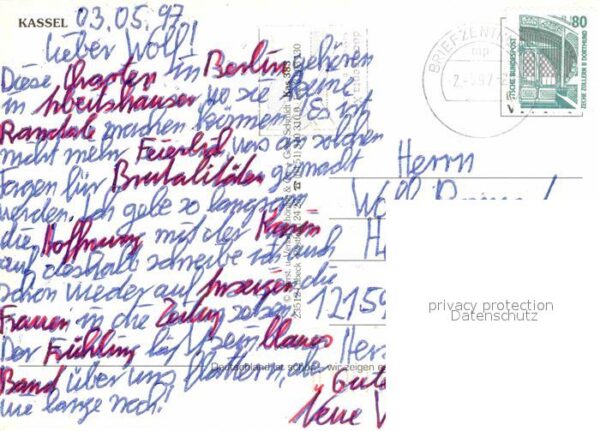 KASSEL
03.05.97
Lieber Wolf!
Diese Chaoten in Berlin gehören
in Arbeitshäuser wo sie keine
Randale machen können. Es ist
nicht mehr Feierlich, was an solchen
Tagen für Brutalitäten gemacht
werden. Ich gebe so langsam
die Hoffnung mit der Karin
auf deshalb schreibe ich auch
schon wieder auf Anzeigen die
Frauen in die Zeitung setzen.
Der Frühling läßt sein blaues
Band über uns flattern,
wie lange noch!
Deutschland ist schön - wir zeigen
BRIEFZENTRUM
mp
80
DEUTSCHE BUNDESPOST
ZECHE ZOLLERN II DORTMUND
Herrn
12159
Gute
Neue
privacy protection
Datenschutz